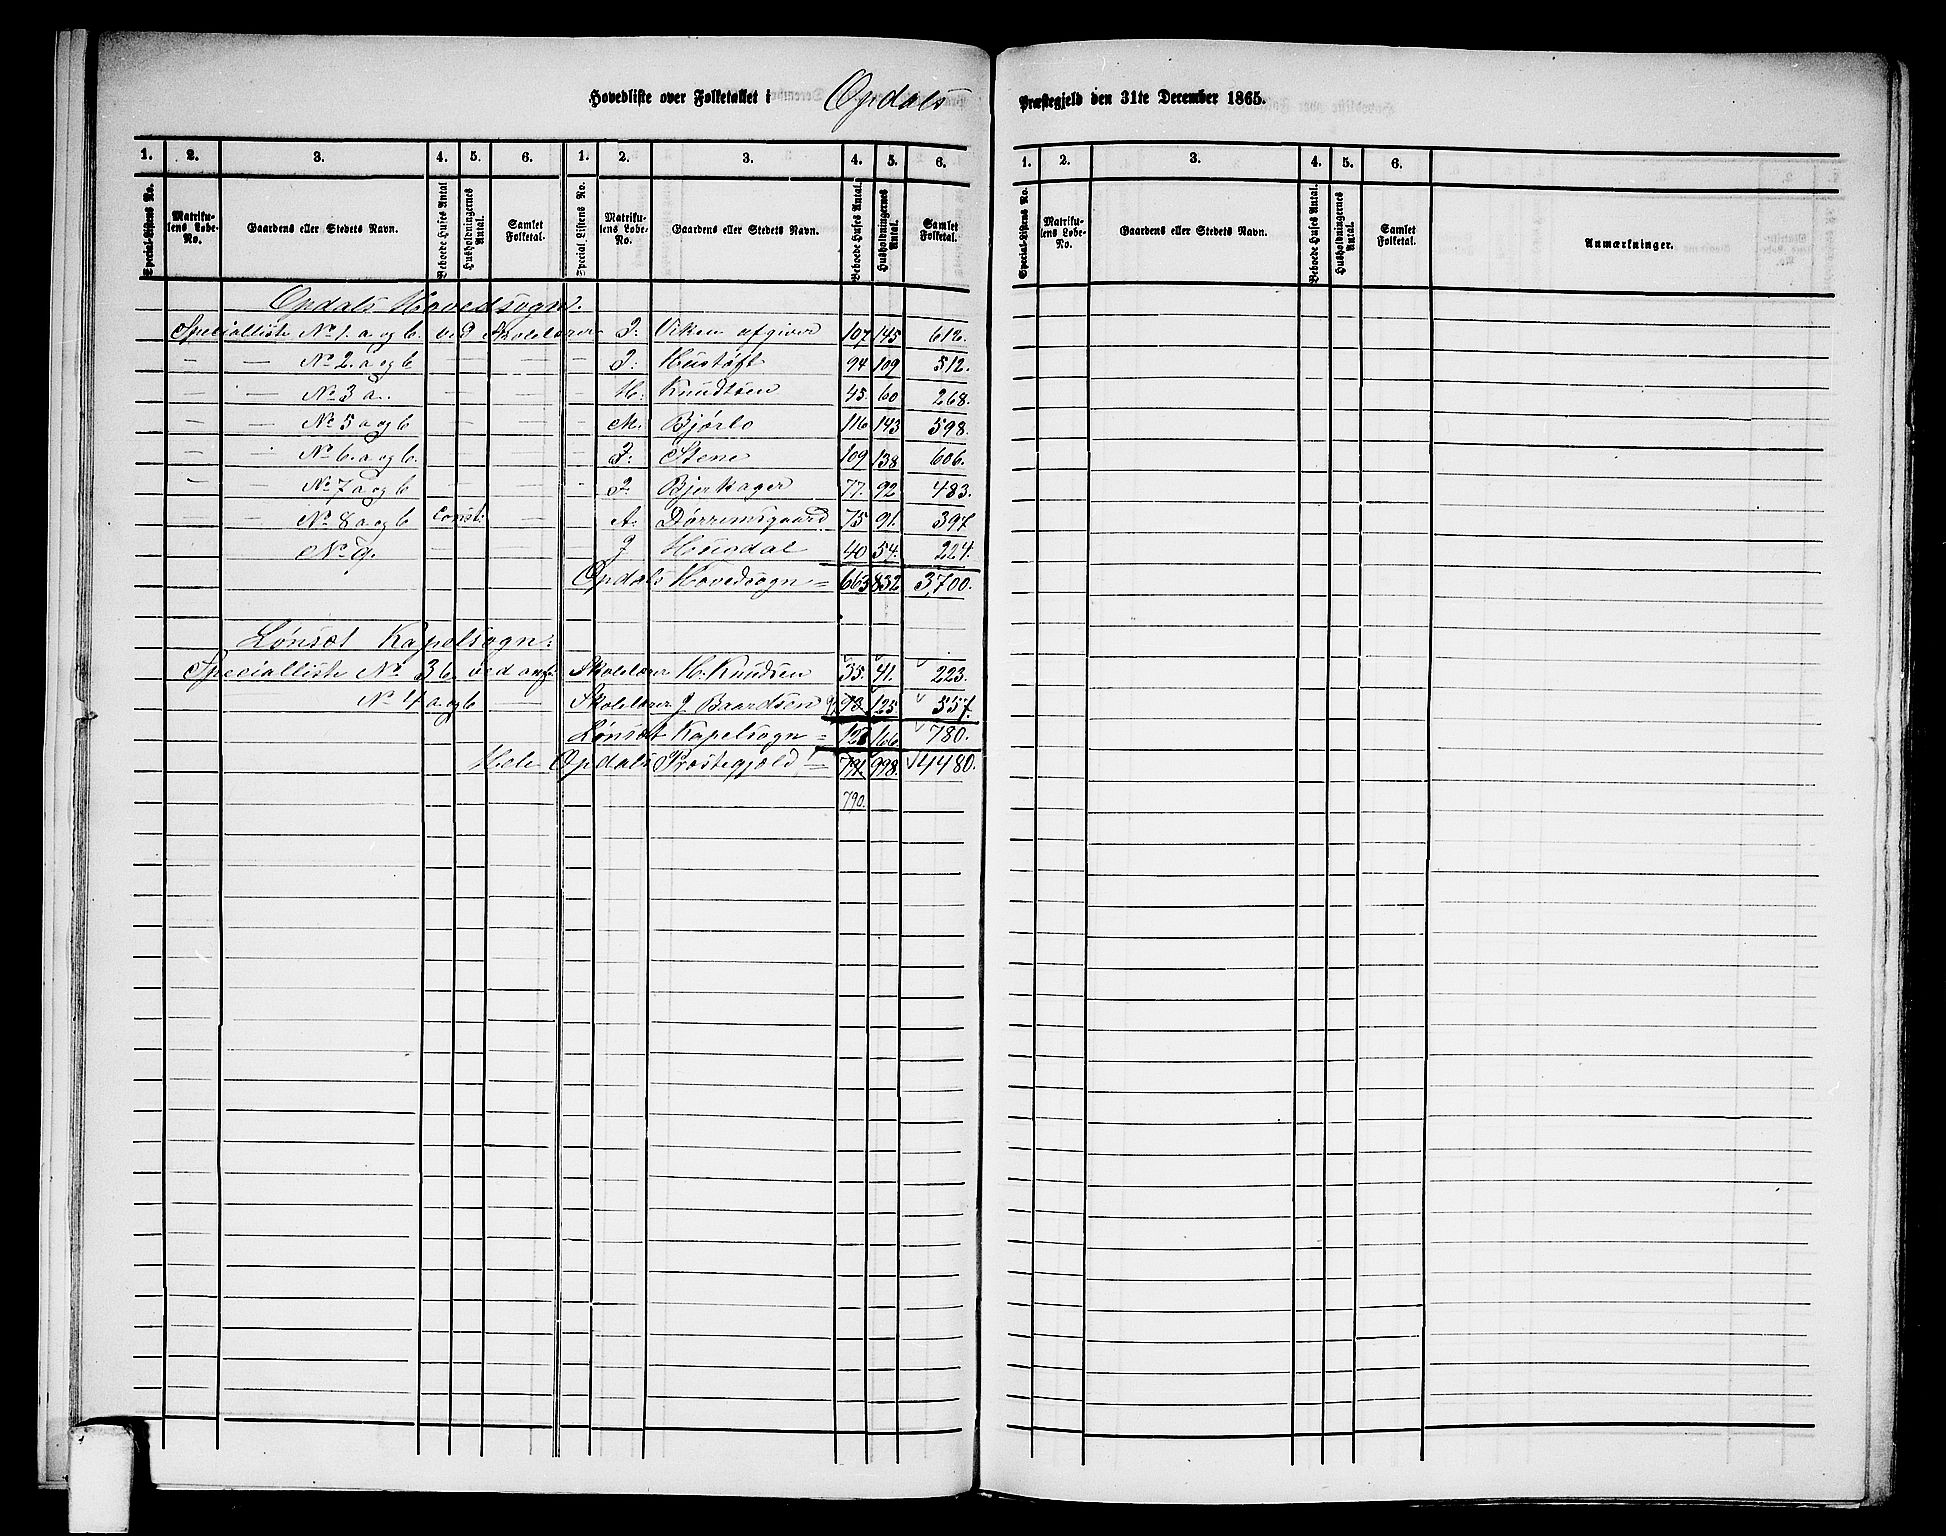 Hovedliste over Folketallet i Opdals Præstegjeld den 31te December 1865.
1. 2. 3. 4. 5. 6. 1. 2. 3. 4. 5. 6.
Special-Listens No. Matrikulens Løbe-No. Gaardens eller Stedets Navn. Beboede Huses Antal Husholdningernes Antal. Samlet Folketal. Special Listens No. Matrikulens Løbe-No. Gaardens eller Stedets Navn. Beboede Huses Antal. Husholdningernes Antal. Samlet Folketal.
Opdals Hovedsogn:
Specialliste No 1. a og b. ved Skolelærer J: Viken afgiver 107 145 612.
— — No 2. a og b — — — J: Hustøft 94 109 512.
— — No 3 a. — — — H. Knudtsen 45. 60 268.
— — No 5 a og b — — — M. Bjørlo 116 143 598.
— — No 6. a og b. — — — J: Stene 109 138 606.
— — No 7 a og b — — — J. Bjerkager 77. 92 483.
— — No 8 a og b const. — A. Dørremsgaard 75 91. 397
No 9. — — — J Husdal 40 54. 224.
Opdals Hovedsogn = 663 832 3,700.
Lønset Kapelsogn:
Specialliste No 3 b. ved Skolelærer H. Knudsen 35. 41. 223.
No 4 a og b — Skolelærer J Baardsen 125. 557.
Lønset Kapelsogn = 166 780.
Hele Opdals Præstegjeld = 998. 4480.
790.
1. 2. 3. 4. 5. 6.
Special-Listens No. Matrikulens Løbe-No. Gaardens eller Stedets Navn. Beboede Huses Antal. Husholdningernes Antal. Samlet Folketal. Anmærkninger.